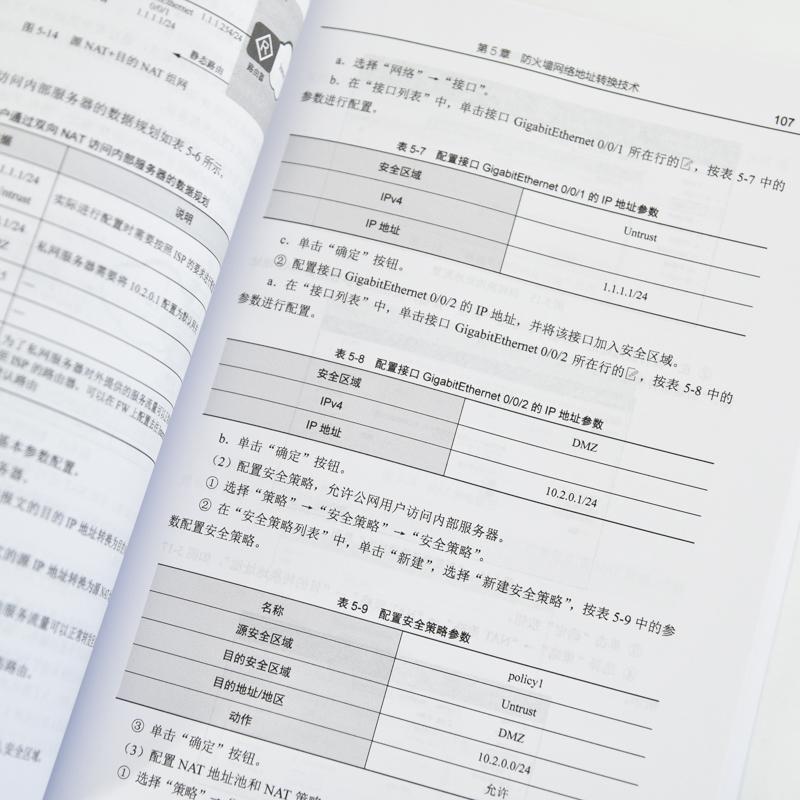 1.1.1.254/24
0/0/1
1.1.1.1/24
路由器
静态路由
图 5-14 源 NAT+目的 NAT 组网
访问内部服务器的数据规划如表 5-6 所示。
户通过双向 NAT 访问内部服务器的数据规划
说明
1.1.1/24
Untrust
实际进行配置时需要按照 ISP 的要求进行
私网服务器需要将 10.2.0.1 配置为默认网
—
—
为了私网服务器对外提供的服务流量可以
ISP 的路由器，可以在 FW 上配置去往
认路由
基本参数配置。
务器。
报文的目的 IP 地址转换为
的源 IP 地址转换为源 NAT
服务流量可以正常转
路由。
安全区域
第 5 章 防火墙网络地址转换技术
107
a．选择“网络”→“接口”。
b．在“接口列表”中，单击接口 GigabitEthernet 0/0/1 所在行的，按表 5-7 中的
参数进行配置。
表 5-7 配置接口 GigabitEthernet 0/0/1 的 IP 地址参数
安全区域 Untrust
IPv4
IP 地址 1.1.1.1/24
c．单击“确定”按钮。
② 配置接口 GigabitEthernet 0/0/2 的 IP 地址，并将该接口加入安全区域。
a．在“接口列表”中，单击接口 GigabitEthernet 0/0/2 所在行的，按表 5-8 中的
参数进行配置。
表 5-8 配置接口 GigabitEthernet 0/0/2 的 IP 地址参数
安全区域 DMZ
IPv4
IP 地址 10.2.0.1/24
b．单击“确定”按钮。
（2）配置安全策略，允许公网用户访问内部服务器。
① 选择“策略”→“安全策略”→“安全策略”。
② 在“安全策略列表”中，单击“新建”，选择“新建安全策略”，按表 5-9 中的参
数配置安全策略。
表 5-9 配置安全策略参数
名称 policy1
源安全区域 Untrust
目的安全区域 DMZ
目的地址/地区 10.2.0.0/24
动作 允许
③ 单击“确定”按钮。
（3）配置 NAT 地址池和 NAT 策略
① 选择“策略”→“